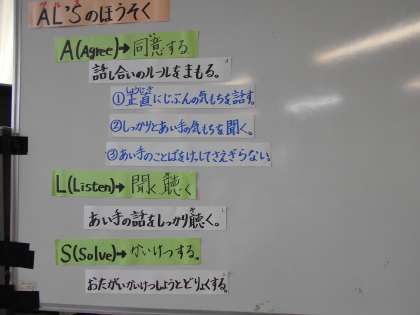 AL'Sのほうそく
A(Agree)→同意する
話し合いのルールをまもる。
①正直にじぶんの気もちを話す。
②しっかりとあい手の気もちを聞く。
③あい手のことばをけっしてさえぎらない。
L(Listen)→聞く 聴く
あい手の話をしっかり聴く。
S(Solve)→かいけつする。
おたがいかいけつしようとどりょくする。